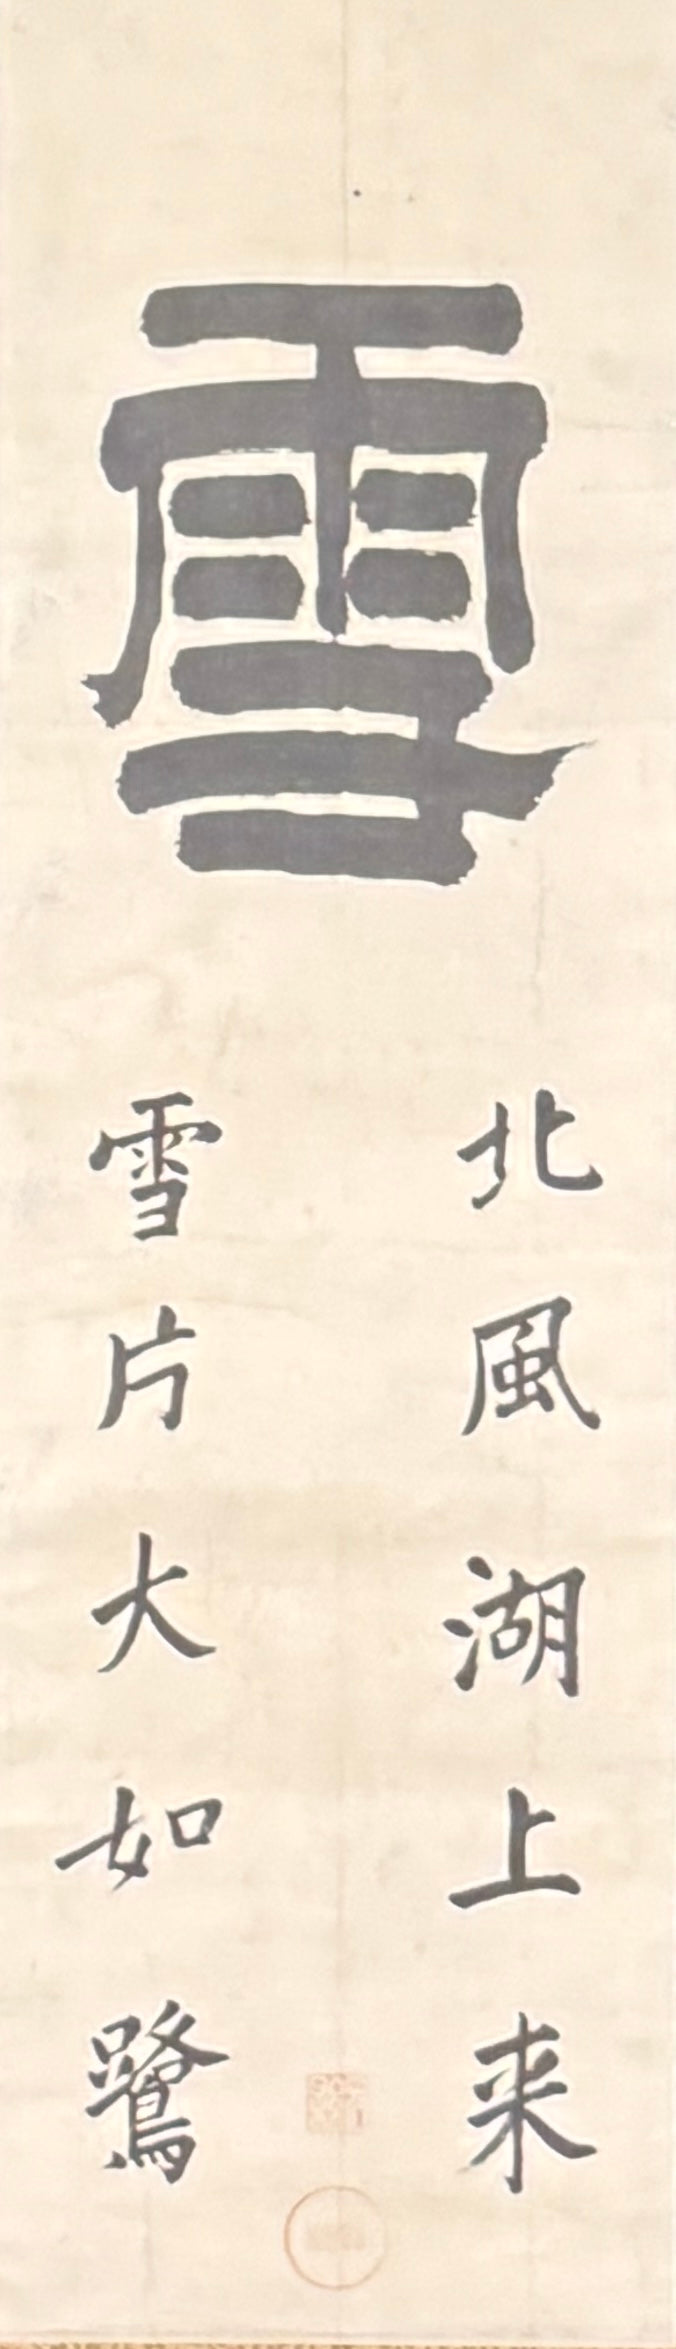 雪
北風湖上来
雪片大如鷺